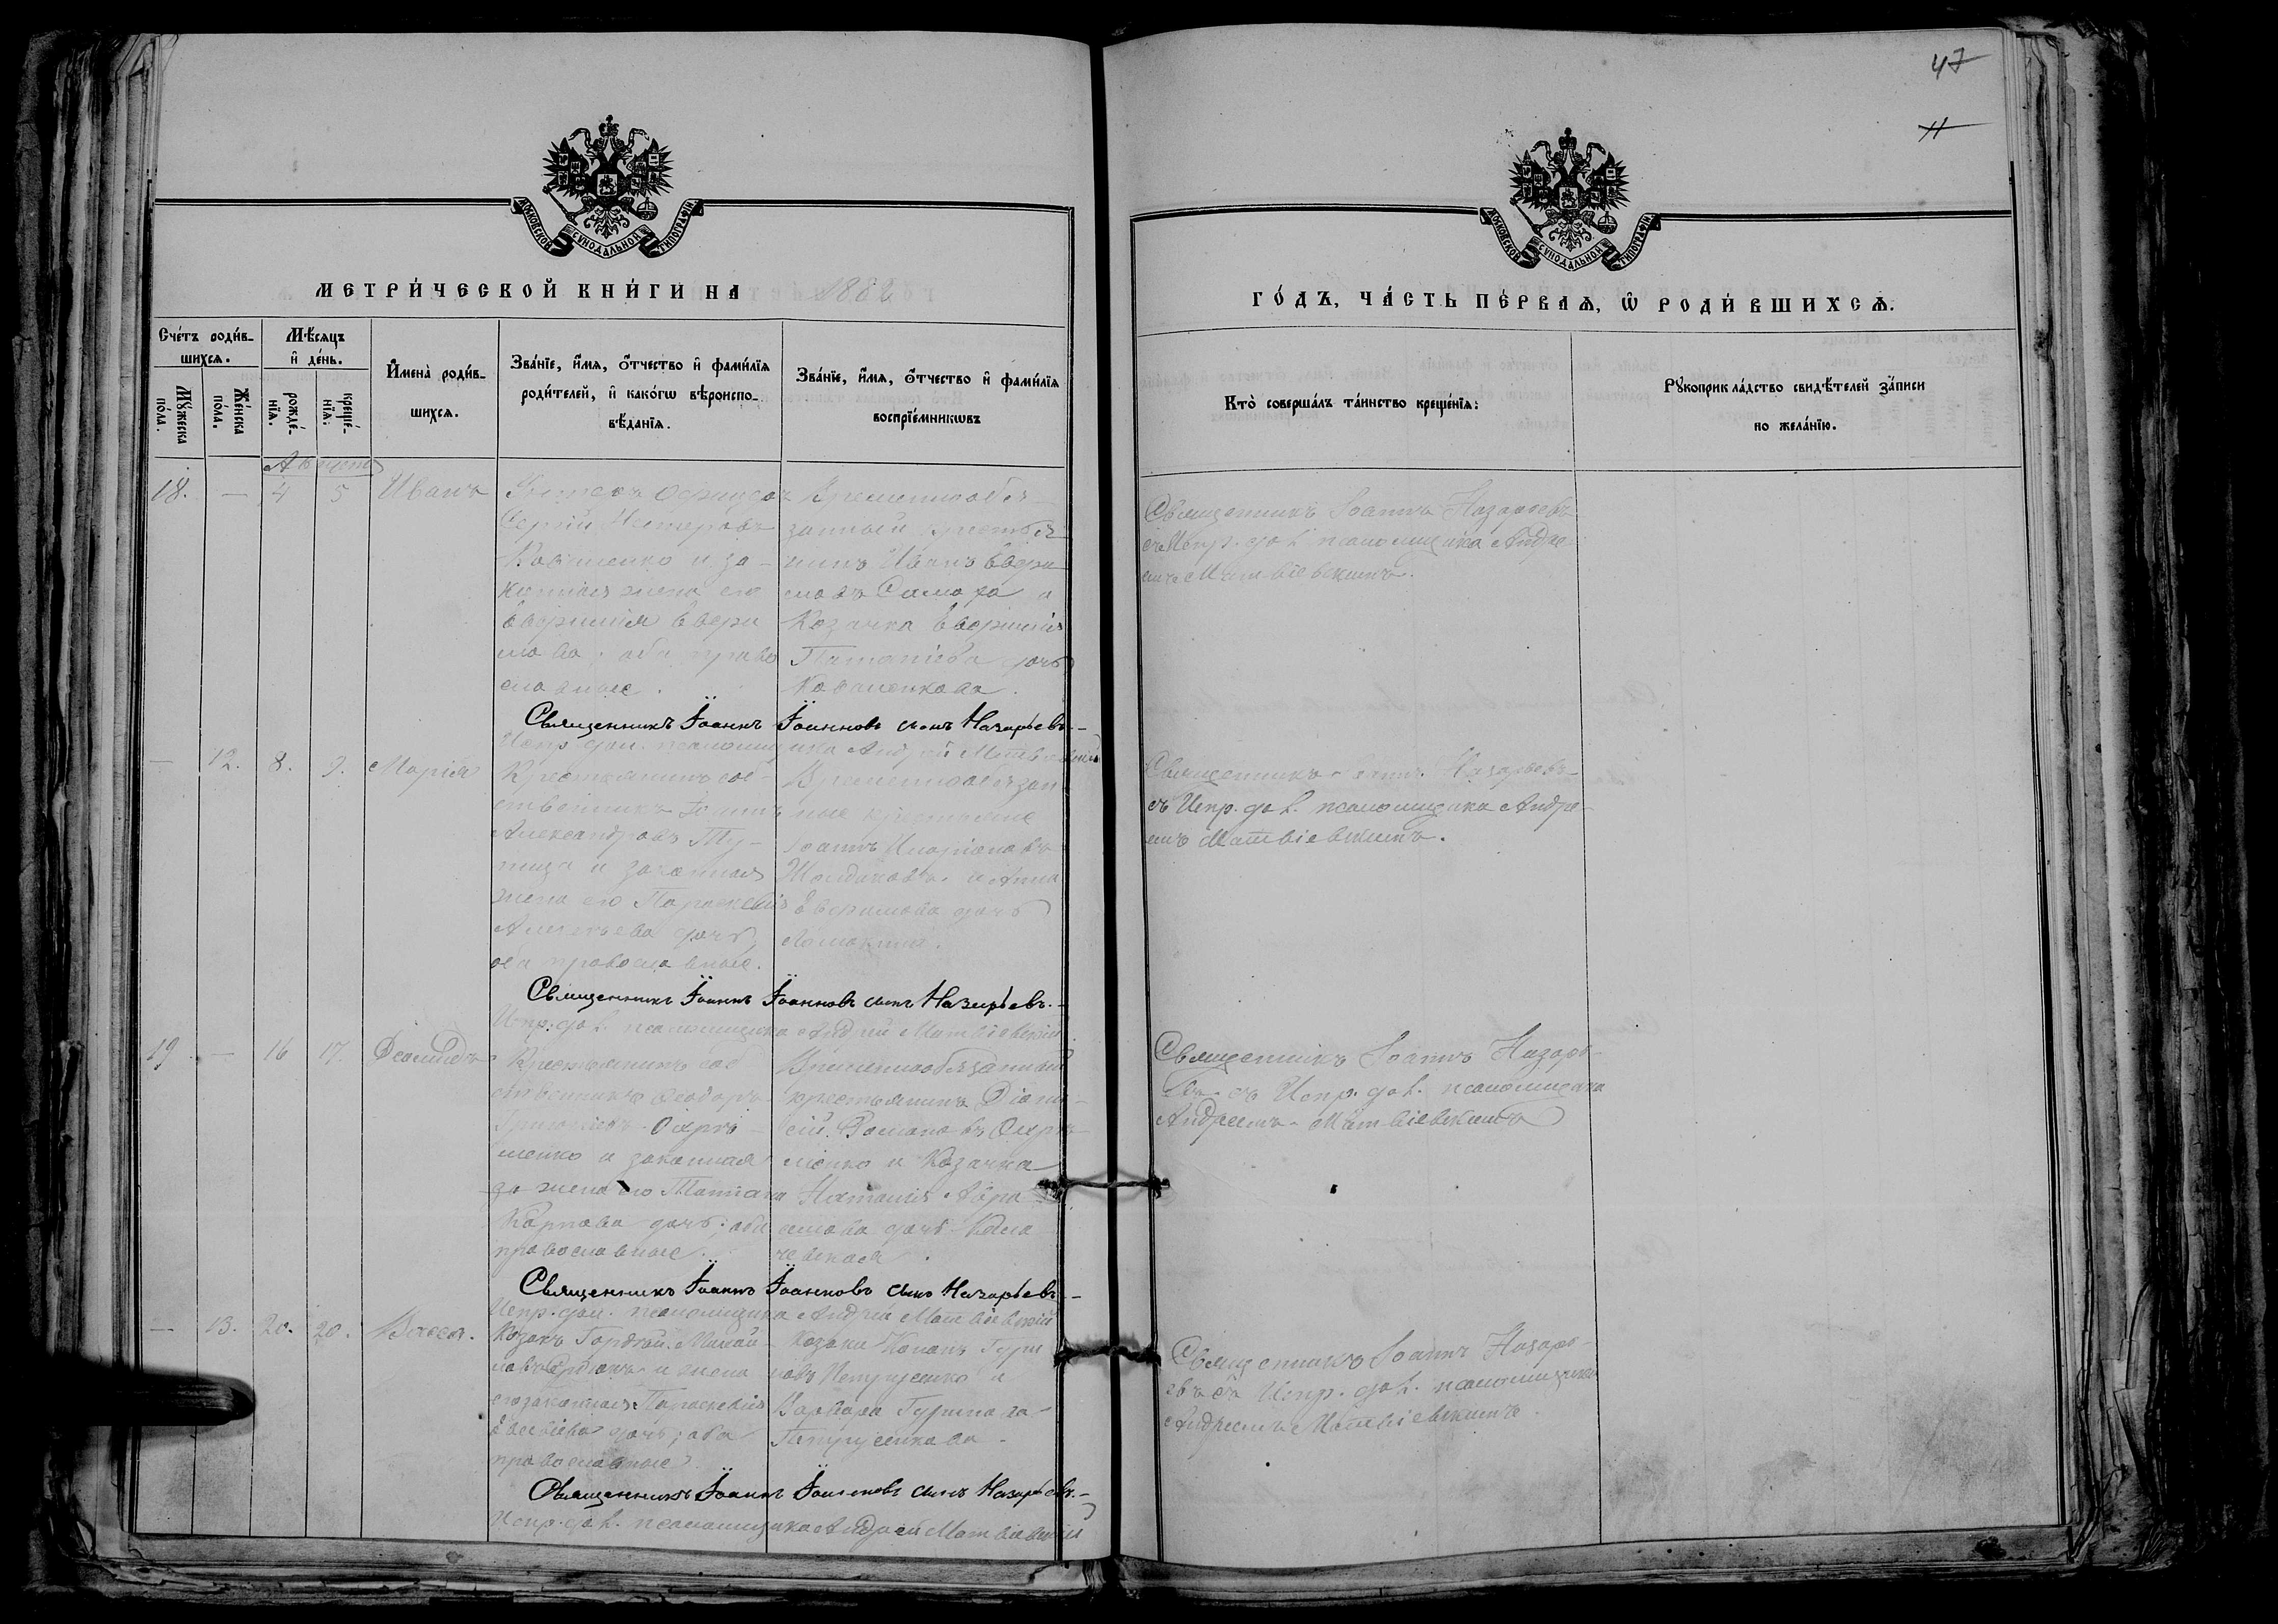 47
11
МОСКОВСКОЙ СѴНОДАЛЬНОЙ ТИПОГРАФІИ
МОСКОВСКОЙ СѴНОДАЛЬНОЙ ТИПОГРАФІИ
МЕТРИ́ЧЕСКОЙ КНИ́ГИ НА 1882
ГО́ДЪ, ЧА́СТЬ ПЕ́РВАЯ, Ѡ РОДИ́ВШИХСѦ.
Сче́тъ роди́в-
шихсѧ.
Мꙋ́жеска
по́ла.
Же́нска
по́ла.
Мѣ́сяцъ
и҆ де́нь.
рожде́-
нїѧ.
креще́-
нїѧ.
И҆мена̀ роди́в-
шихсѧ.
Зва́нїе, и҆́мѧ, ѻ҆́тчество и҆ фами́лїѧ
роди́телей, и҆ како́гѡ вѣроиспо-
вѣ́данїѧ.
Зва́нїе, и҆́мѧ, ѻ҆́тчество и҆ фами́лїѧ
воспрїе́мникѡвъ
Кто̀ соверша́лъ та́инство креще́нїѧ:
Рꙋкоприкла́дство свидѣ́телей за́писи
по жела́нїю.
Августъ
18. — 4 5 Иванъ
Сергій Нестеровъ
Коваленко и за-
конная жена его
Евфимія Евфи
мова; оба право
славные.
Временнообя
занный крестья
нинъ Иванъ Евфи
мовъ и
Козачка Евфимія
дочь
Коваленкова.
Священникъ Іоаннъ Назарьевъ
съ Испр. дол. псаломщика Андре
емъ Матвіевскимъ.
Священникъ Іоаннъ Іоанновъ сынъ Назарьевъ.-
Испр. дол. псаломщика Андрей Матвіевскій
— 12. 8. 9. Марія
Крестьянинъ соб-
ственникъ Іоаннъ
Александровъ
и законная
жена его Параскевія
Алексѣева дочь,
оба православные.
Временнообязан
ные крестьяне
Іоаннъ Иларіоновъ
и Анна
дочь
Священникъ Іоаннъ Назарьевъ
съ Испр. дол. псаломщика Андре-
емъ Матвіевскимъ.
Священникъ Іоаннъ Іоанновъ сынъ Назарьевъ.-
Испр. дол. псаломщика Андрей Матвіевскій
19 — 16 17. Діомидъ
Крестьянинъ соб
ственникъ Ѳеодоръ
Охрі-
менко и законная
жена его Татіана
Карпова дочь; оба
православные.
Временнообязанный
крестьянинъ Діони-
сій Романовъ Охрі-
менко и Козачка
Наталія
дочь
Священникъ Іоаннъ Назарь-
евъ съ Испр. дол. псаломщика
Андреемъ Матвіевскимъ
Священникъ Іоаннъ Іоанновъ сынъ Назарьевъ.-
Испр. дол. псаломщика Андрей Матвіевскій
— 13. 20. 20. Васса.
Козакъ Гордѣй Михай
ловъ и жена
его законная Параскевія
Евсѣіева дочь; оба
православные
Козаки Кононъ Гури
овъ Петрусенко и
Варвара Гуріова
Петрусенкова
Священникъ Іоаннъ Назарь-
евъ съ Испр. дол. псаломщика
Андреемъ Матвіевскимъ
Священникъ Іоаннъ Іоанновъ сынъ Назарьевъ.-
Испр. дол. псаломщика Андрей Матвіевскій